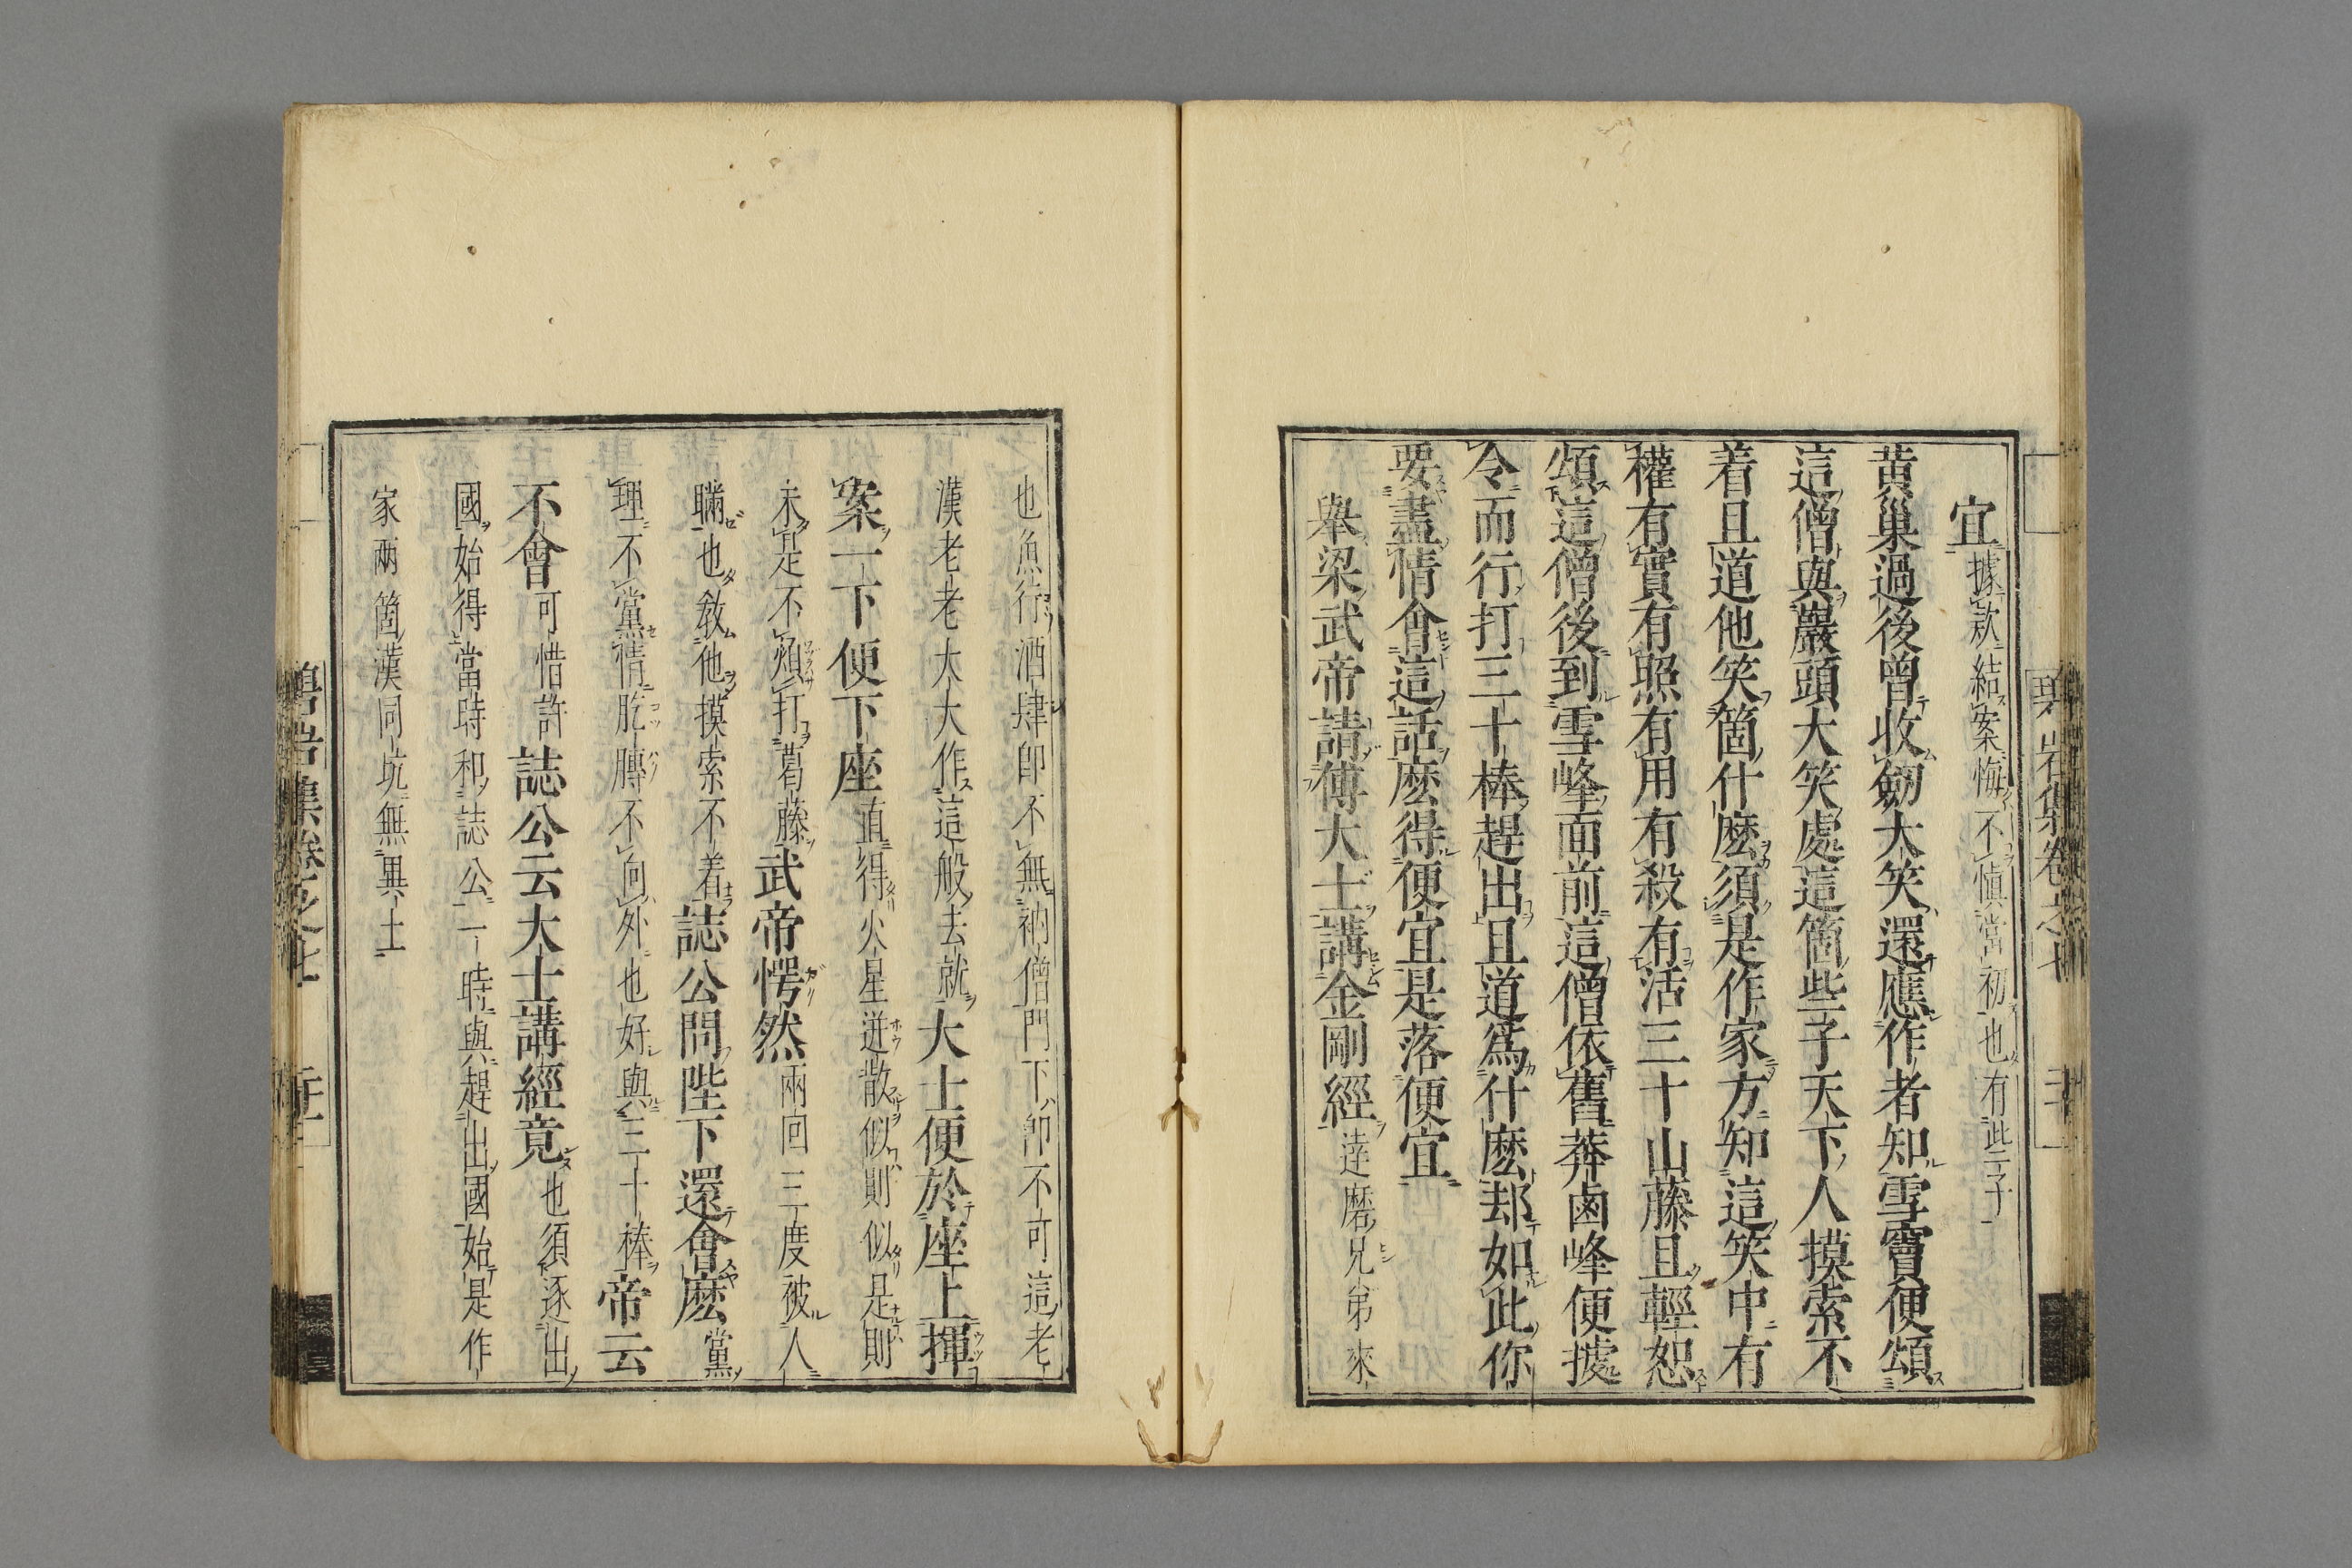 宜據款結案悔不愼當初也有些子
黄巢過後曾收劒大笑還應作者知雪竇便頌
這僧與巖頭大笑處這箇些子天下人摸索不
着且道他笑箇什麽須是作家方知這笑中有
權有實有照有用有殺有活三十山藤且輕恕
頌這僧後到雪峰面前這僧依舊莽鹵峰便據
令而行打三十棒趕出且道爲什麽却如此你
要盡情會這話麽得便宜是落便宜
舉梁武帝請傅大士講金剛經達磨兄弟來
也魚行酒肆即不無衲僧門下即不可這老
漢老老大大作這般去就大士便於座上揮
案一下便下座直得火星迸散似則似是則
未是不煩打葛藤武帝愕然兩回三度被人
瞞也敎他摸索不着誌公問陛下還會麽黨
理不黨情肐膊不向外也好與三十棒帝云
不會可惜許誌公云大士講經竟也須逐出
國始得當時和誌公一時與趕出國始是作
家兩箇漢同坑無異土